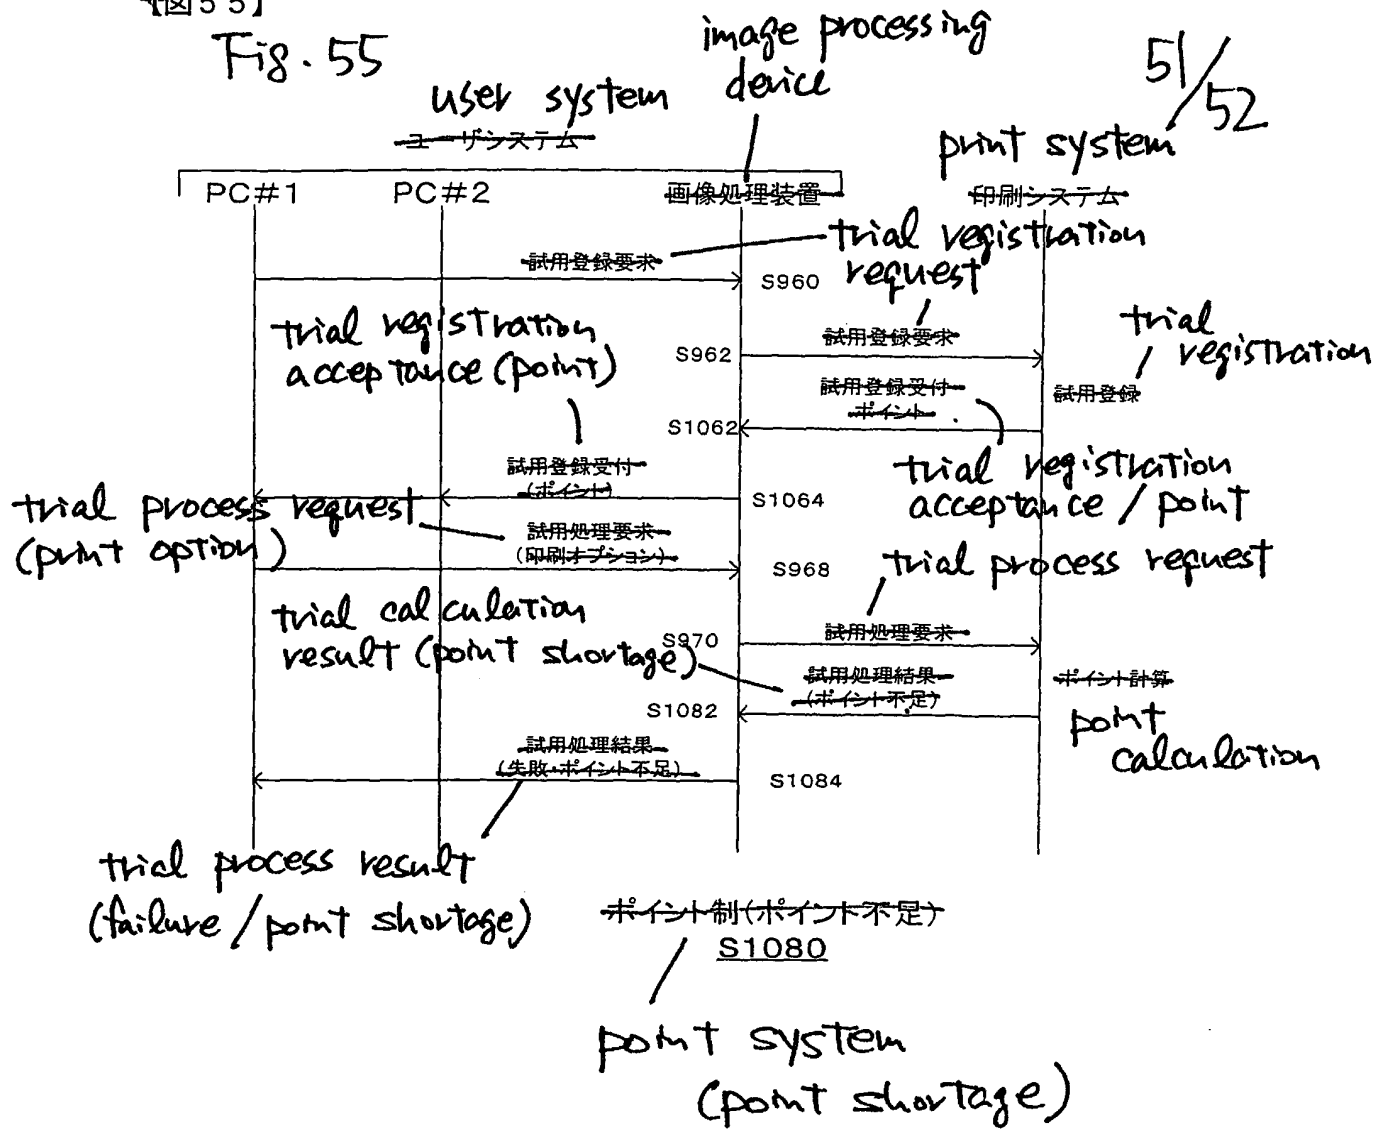 【図55】
Fig. 55
image processing
device
51/52
user system
ユーザシステム
print system
PC#1
PC#2
画像処理装置
印刷システム
試用登録要求
trial registration
request
S960
trial registration
acceptance (point)
S962
試用登録要求
trial
registration
試用登録受付
ポイント
試用登録
S1062
試用登録受付
(ポイント)
S1064
trial registration
acceptance / point
trial process request
(print option)
試用処理要求
(印刷オプション)
S968
trial process request
trial calculation
result (point shortage)
S970
試用処理要求
試用処理結果
(ポイント不足)
ポイント計算
S1082
point
calculation
試用処理結果
(失敗・ポイント不足)
S1084
trial process result
(failure / point shortage)
ポイント制(ポイント不足)
S1080
point system
(point shortage)